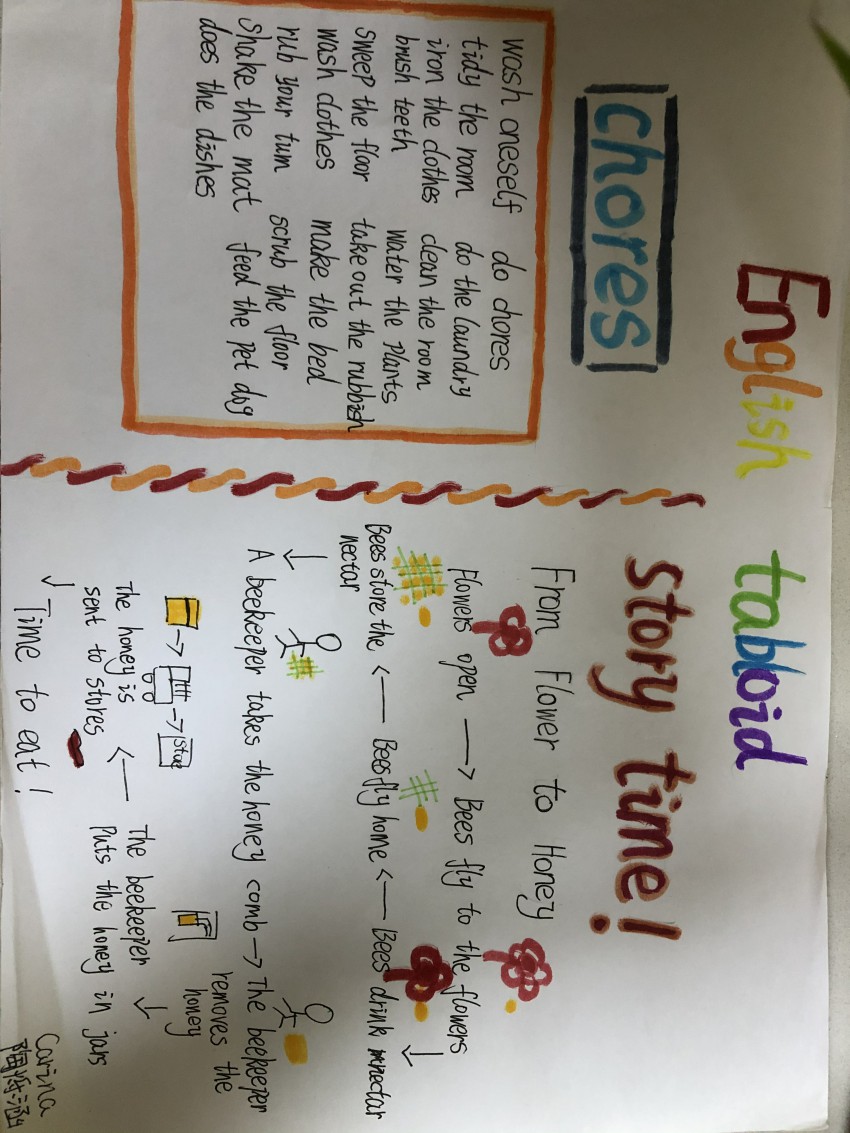 English tabloid
chores
wash oneself do chores
tidy the room do the laundry
iron the clothes clean the room
brush teeth water the plants
sweep the floor take out the rubbish
wash clothes make the bed
rub your tum scrub the floor
shake the mat feed the pet dog
does the dishes
story time!
From Flower to Honey
Flowers open → Bees fly to the flowers
↓
Bees store the ← Bees fly home ← Bees drink nectar
nectar
↓
A beekeeper takes the honey comb → The beekeeper
removes the
honey
↓
The honey is ← The beekeeper
sent to stores Puts the honey in jars
↓
Time to eat!
Carina